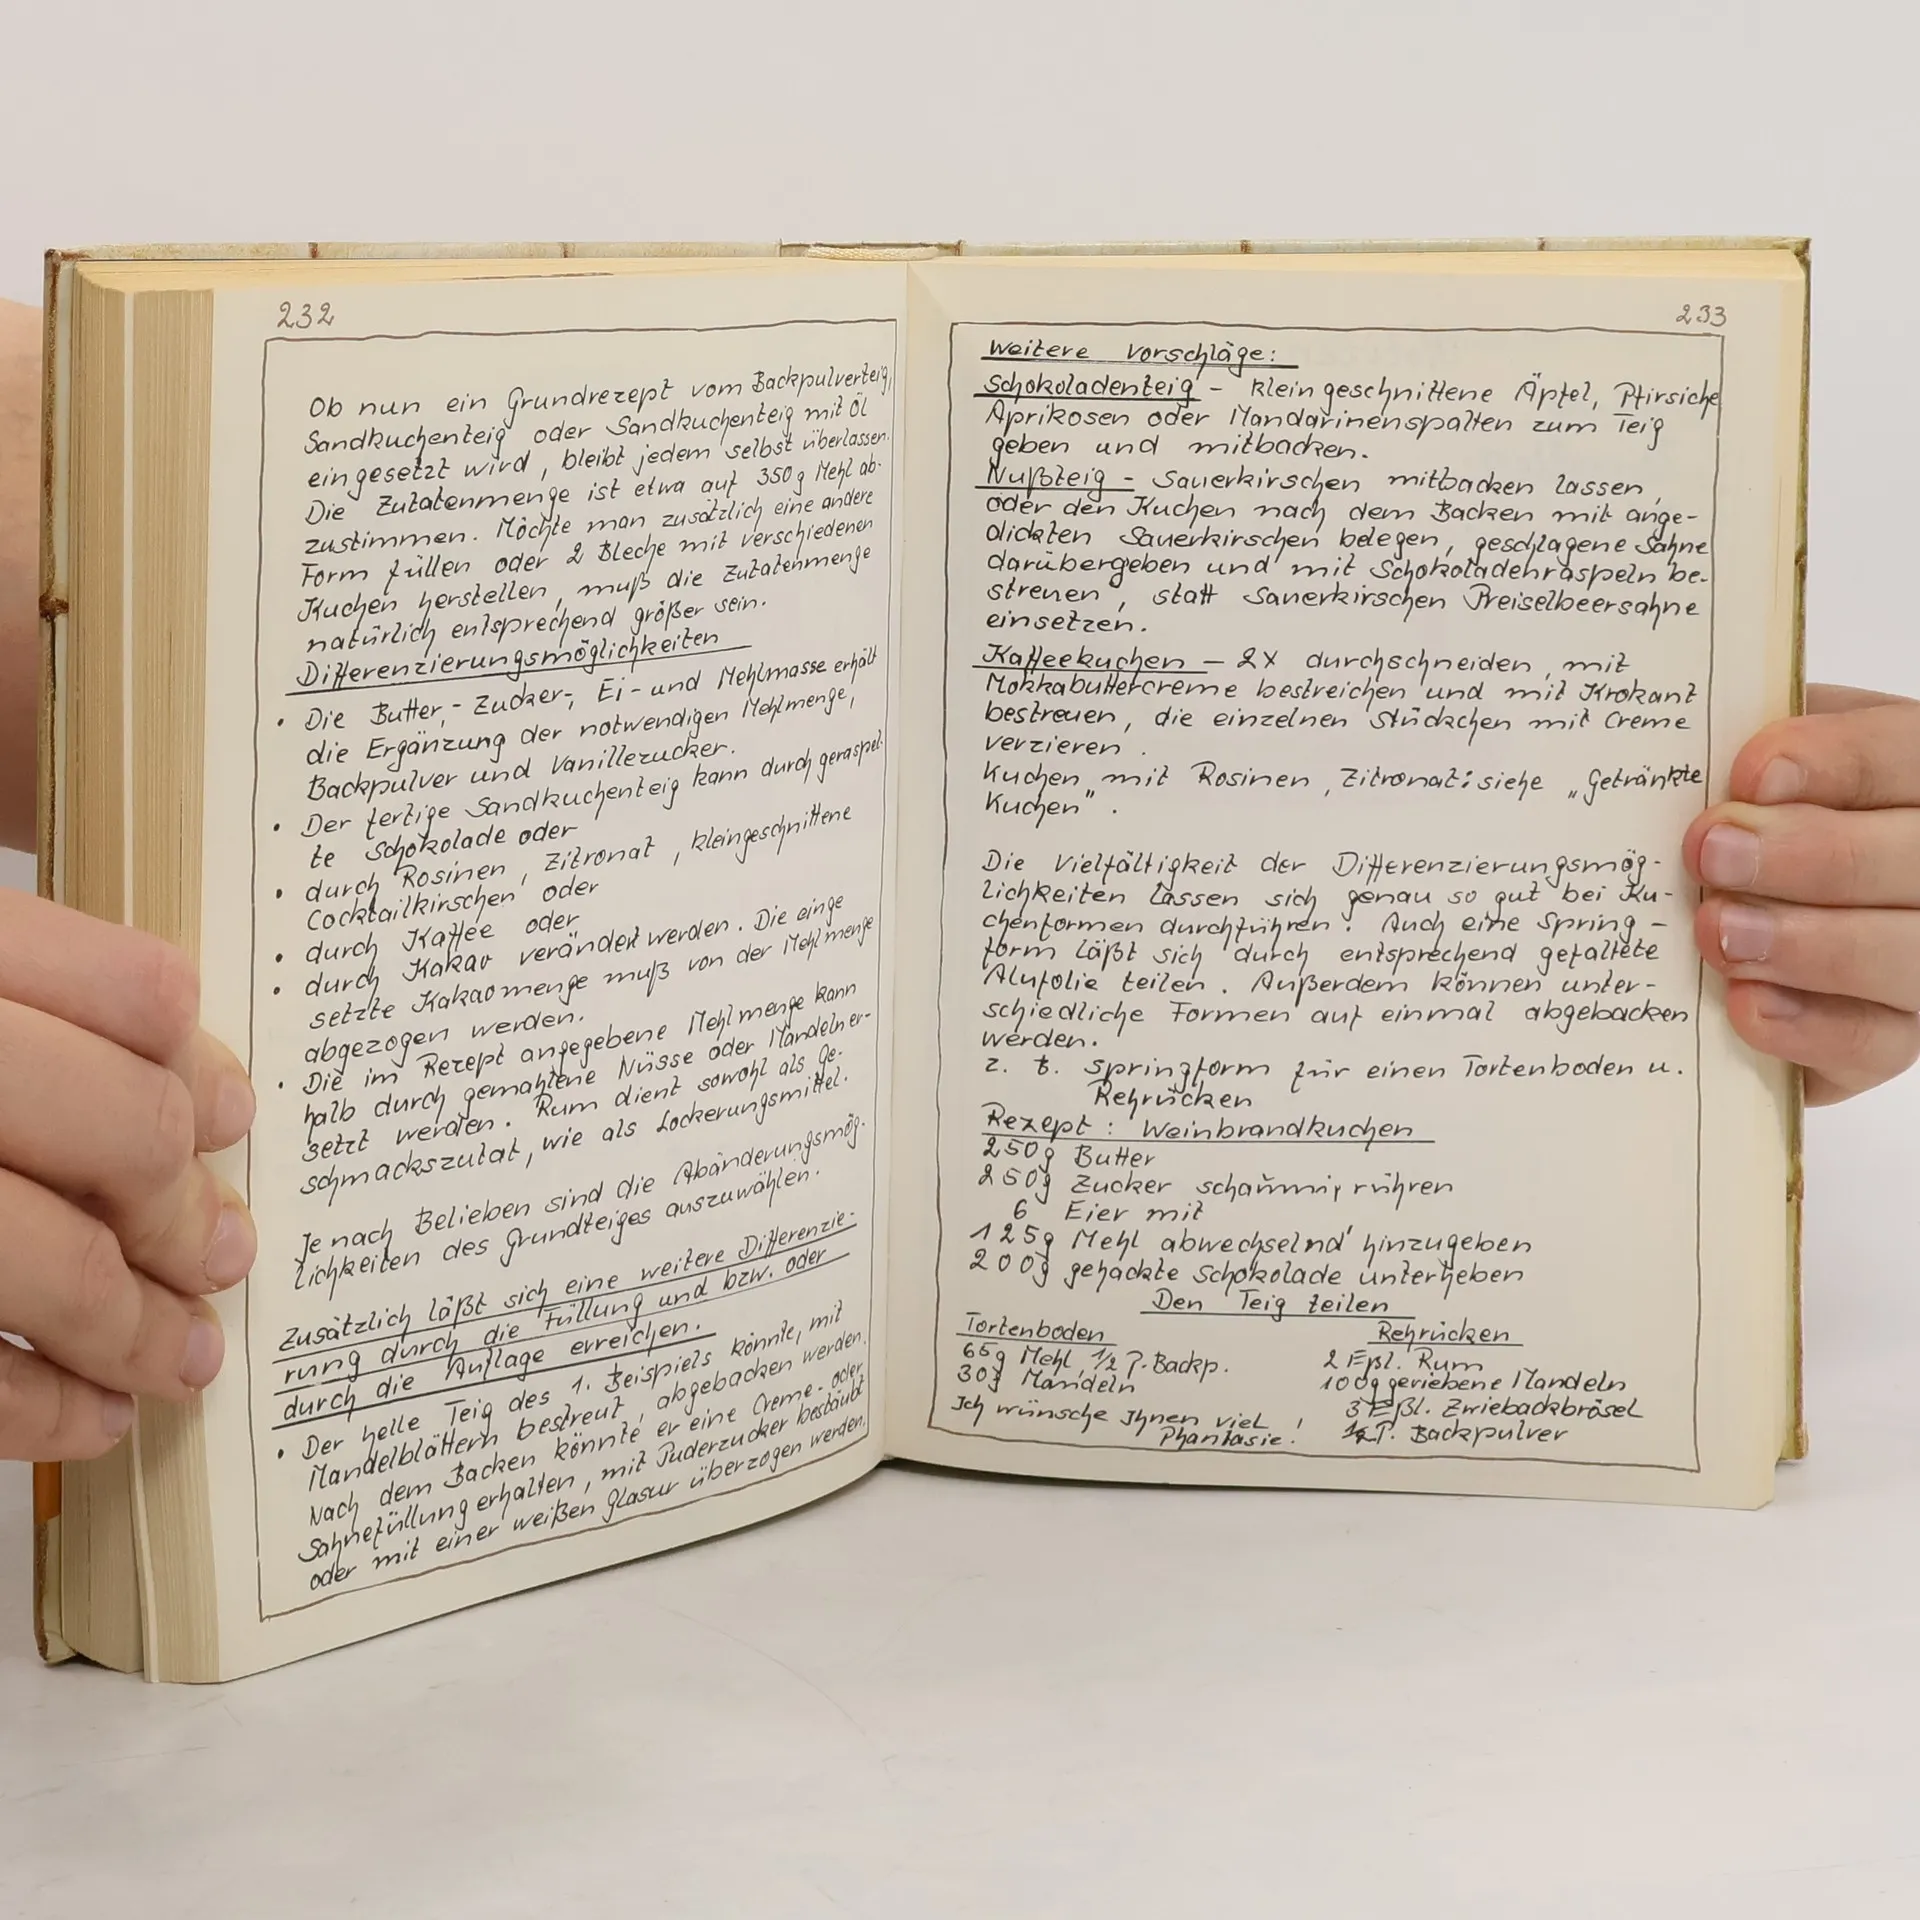 232
Ob nun ein Grundrezept vom Backpulverteig,
Sandkuchenteig oder Sandkuchenteig mit Öl
eingesetzt wird, bleibt jedem selbst überlassen.
Die Zutatenmenge ist etwa auf 350g Mehl ab-
zustimmen. Möchte man zusätzlich eine andere
Form füllen oder 2 Bleche mit verschiedenen
Kuchen herstellen, muß die Zutatenmenge
natürlich entsprechend größer sein.
Differenzierungsmöglichkeiten
• Die Butter,- Zucker-, Ei- und Mehlmasse erhält
die Ergänzung der notwendigen Mehlmenge,
Backpulver und Vanillezucker.
• Der fertige Sandkuchenteig kann durch geraspel-
te Schokolade oder
• durch Rosinen, Zitronat, kleingeschnittene
Cocktailkirschen oder
• durch Kaffee oder
• durch Kakao verändert werden. Die einge
setzte Kakaomenge muß von der Mehlmenge
abgezogen werden.
• Die im Rezept angegebene Mehlmenge kann
halb durch gemahlene Nüsse oder Mandeln er-
setzt werden. Rum dient sowohl als Ge-
schmackszutat, wie als Lockerungsmittel.
Je nach Belieben sind die Abänderungsmög-
lichkeiten des Grundteiges auszuwählen.
Zusätzlich läßt sich eine weitere Differenzie-
rung durch die Füllung und bzw. oder
durch die Auflage erreichen.
• Der helle Teig des 1. Beispiels könnte, mit
Mandelblättern bestreut, abgebacken werden.
Nach dem Backen könnte er eine Creme- oder
Sahnefüllung erhalten, mit Puderzucker bestäubt
oder mit einer weißen Glasur überzogen werden.
233
Weitere Vorschläge:
Schokoladenteig - kleingeschnittene Äpfel, Pfirsiche
Aprikosen oder Mandarinenspalten zum Teig
geben und mitbacken.
Nußteig - Sauerkirschen mitbacken lassen,
oder den Kuchen nach dem Backen mit ange-
dickten Sauerkirschen belegen, geschlagene Sahne
darübergeben und mit Schokoladenraspeln be-
streuen, statt Sauerkirschen Preiselbeersahne
einsetzen.
Kaffeekuchen - 2x durchschneiden, mit
Mokkabuttercreme bestreichen und mit Krokant
bestreuen, die einzelnen Stückchen mit Creme
verzieren.
Kuchen mit Rosinen, Zitronat: siehe „Getränkte
Kuchen".
Die Vielfältigkeit der Differenzierungsmög-
lichkeiten lassen sich genau so gut bei Ku-
chenformen durchführen. Auch eine Spring-
form läßt sich durch entsprechend gefaltete
Alufolie teilen. Außerdem können unter-
schiedliche Formen auf einmal abgebacken
werden.
z. B. Springform für einen Tortenboden u.
Rehrücken
Rezept: Weinbrandkuchen
250g Butter
250g Zucker schaumig rühren
6 Eier mit
125g Mehl abwechselnd hinzugeben
200g gehackte Schokolade unterheben
Den Teig teilen
Tortenboden
65g Mehl, 1/2 P. Backp.
30g Mandeln
Ich wünsche Ihnen viel
Phantasie!
Rehrücken
2 Eßl. Rum
100g geriebene Mandeln
3 Eßl. Zwiebackbrösel
P. Backpulver